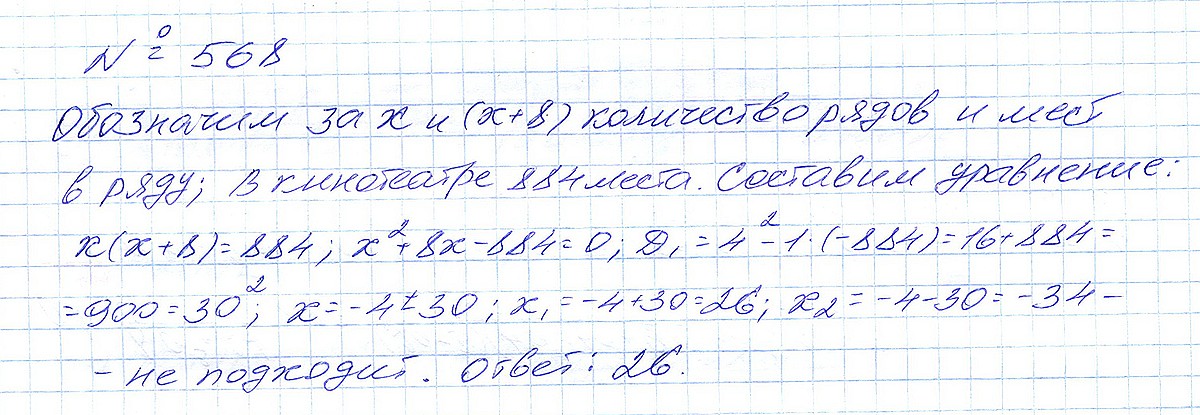 № 568
Обозначим за x и (x+8) количество рядов и мест
в ряду; в кинотеатре 884 места. Составим уравнение:
x(x+8)=884; x²+8x-884=0; Д₁=4²-1·(-884)=16+884=
=900=30²; x=-4±30; x₁=-4+30=26; x₂=-4-30=-34-
- не подходит. Ответ: 26.